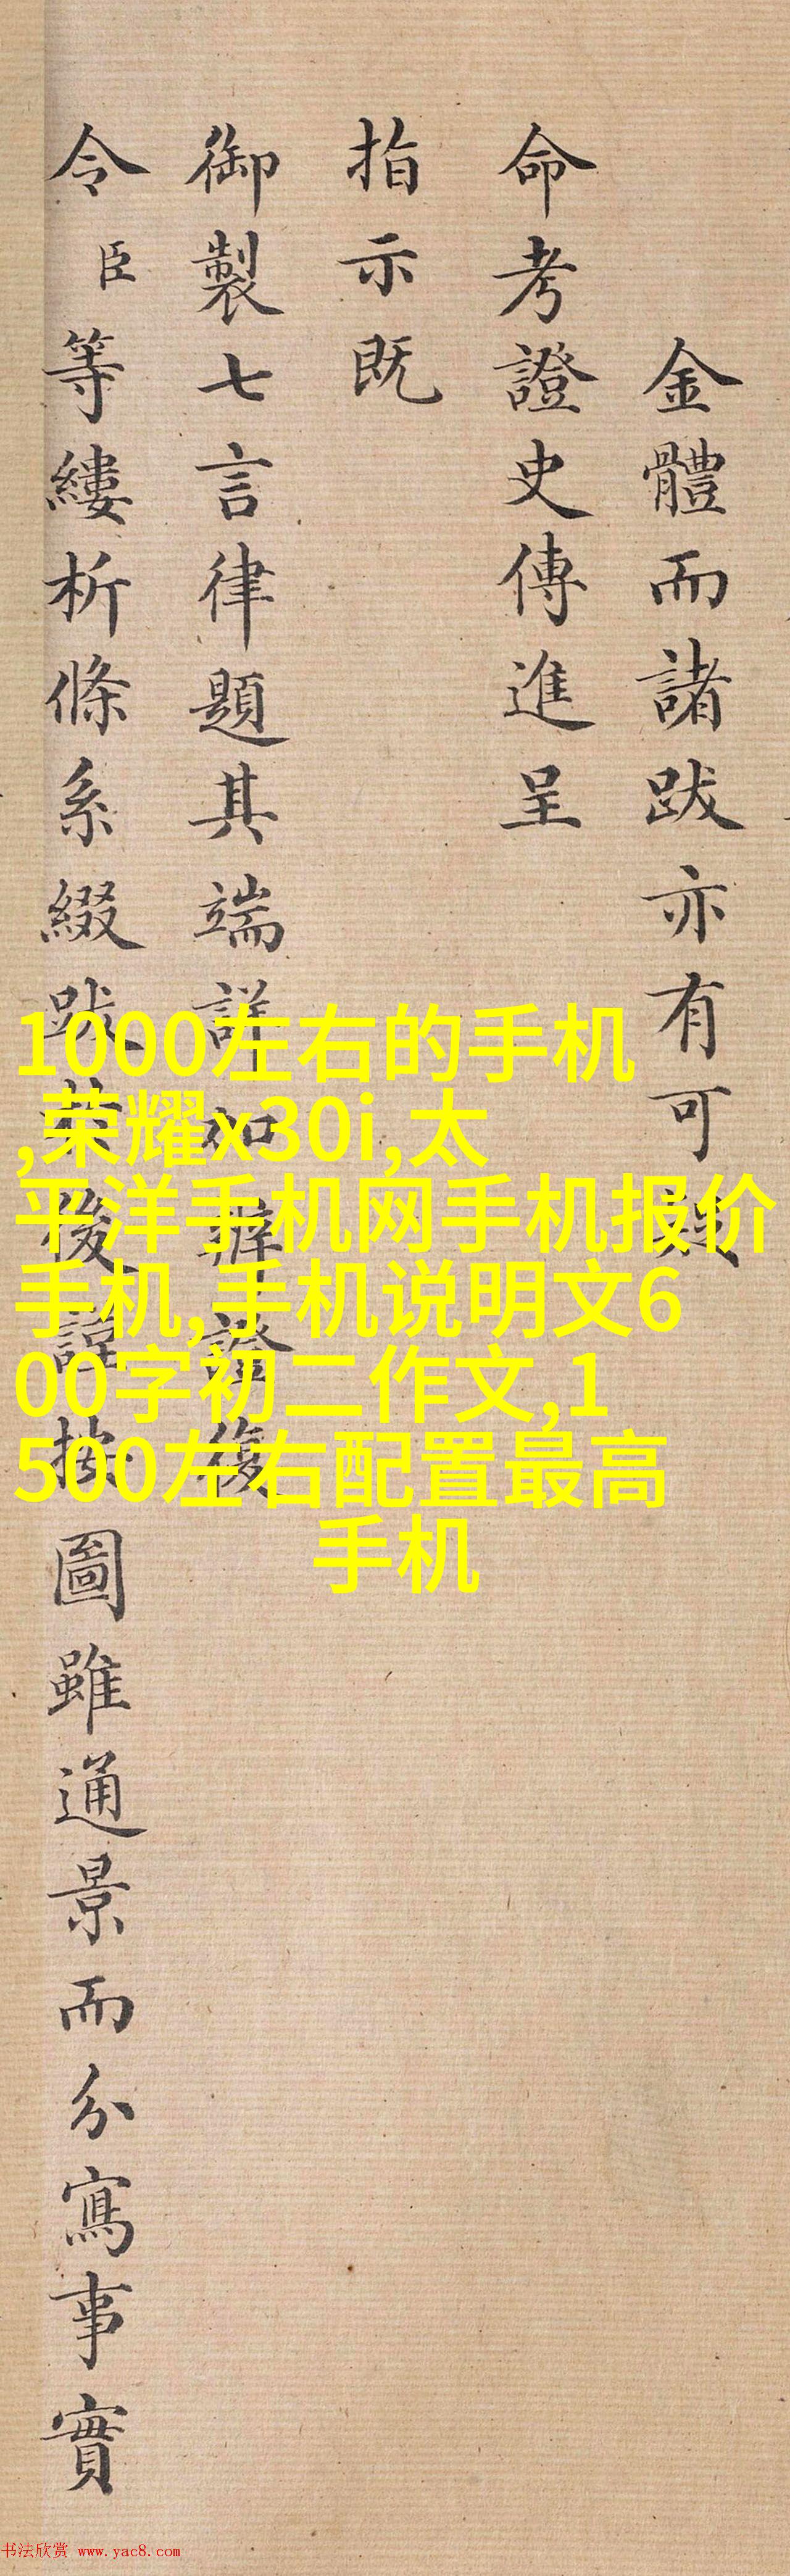 金體而諸跋亦有可疑
命考證史傳進呈
指示既
御製七言律題其端詳如辨證復
令臣等縷析條系綴跋
後謹按圖雖通景而分寫事實
1000左右的手机
,荣耀x30i,太
平洋手机网手机报价
手机,手机说明文6
00字初二作文,1
500左右配置最高
手机
书法欣赏 www.yac8.com